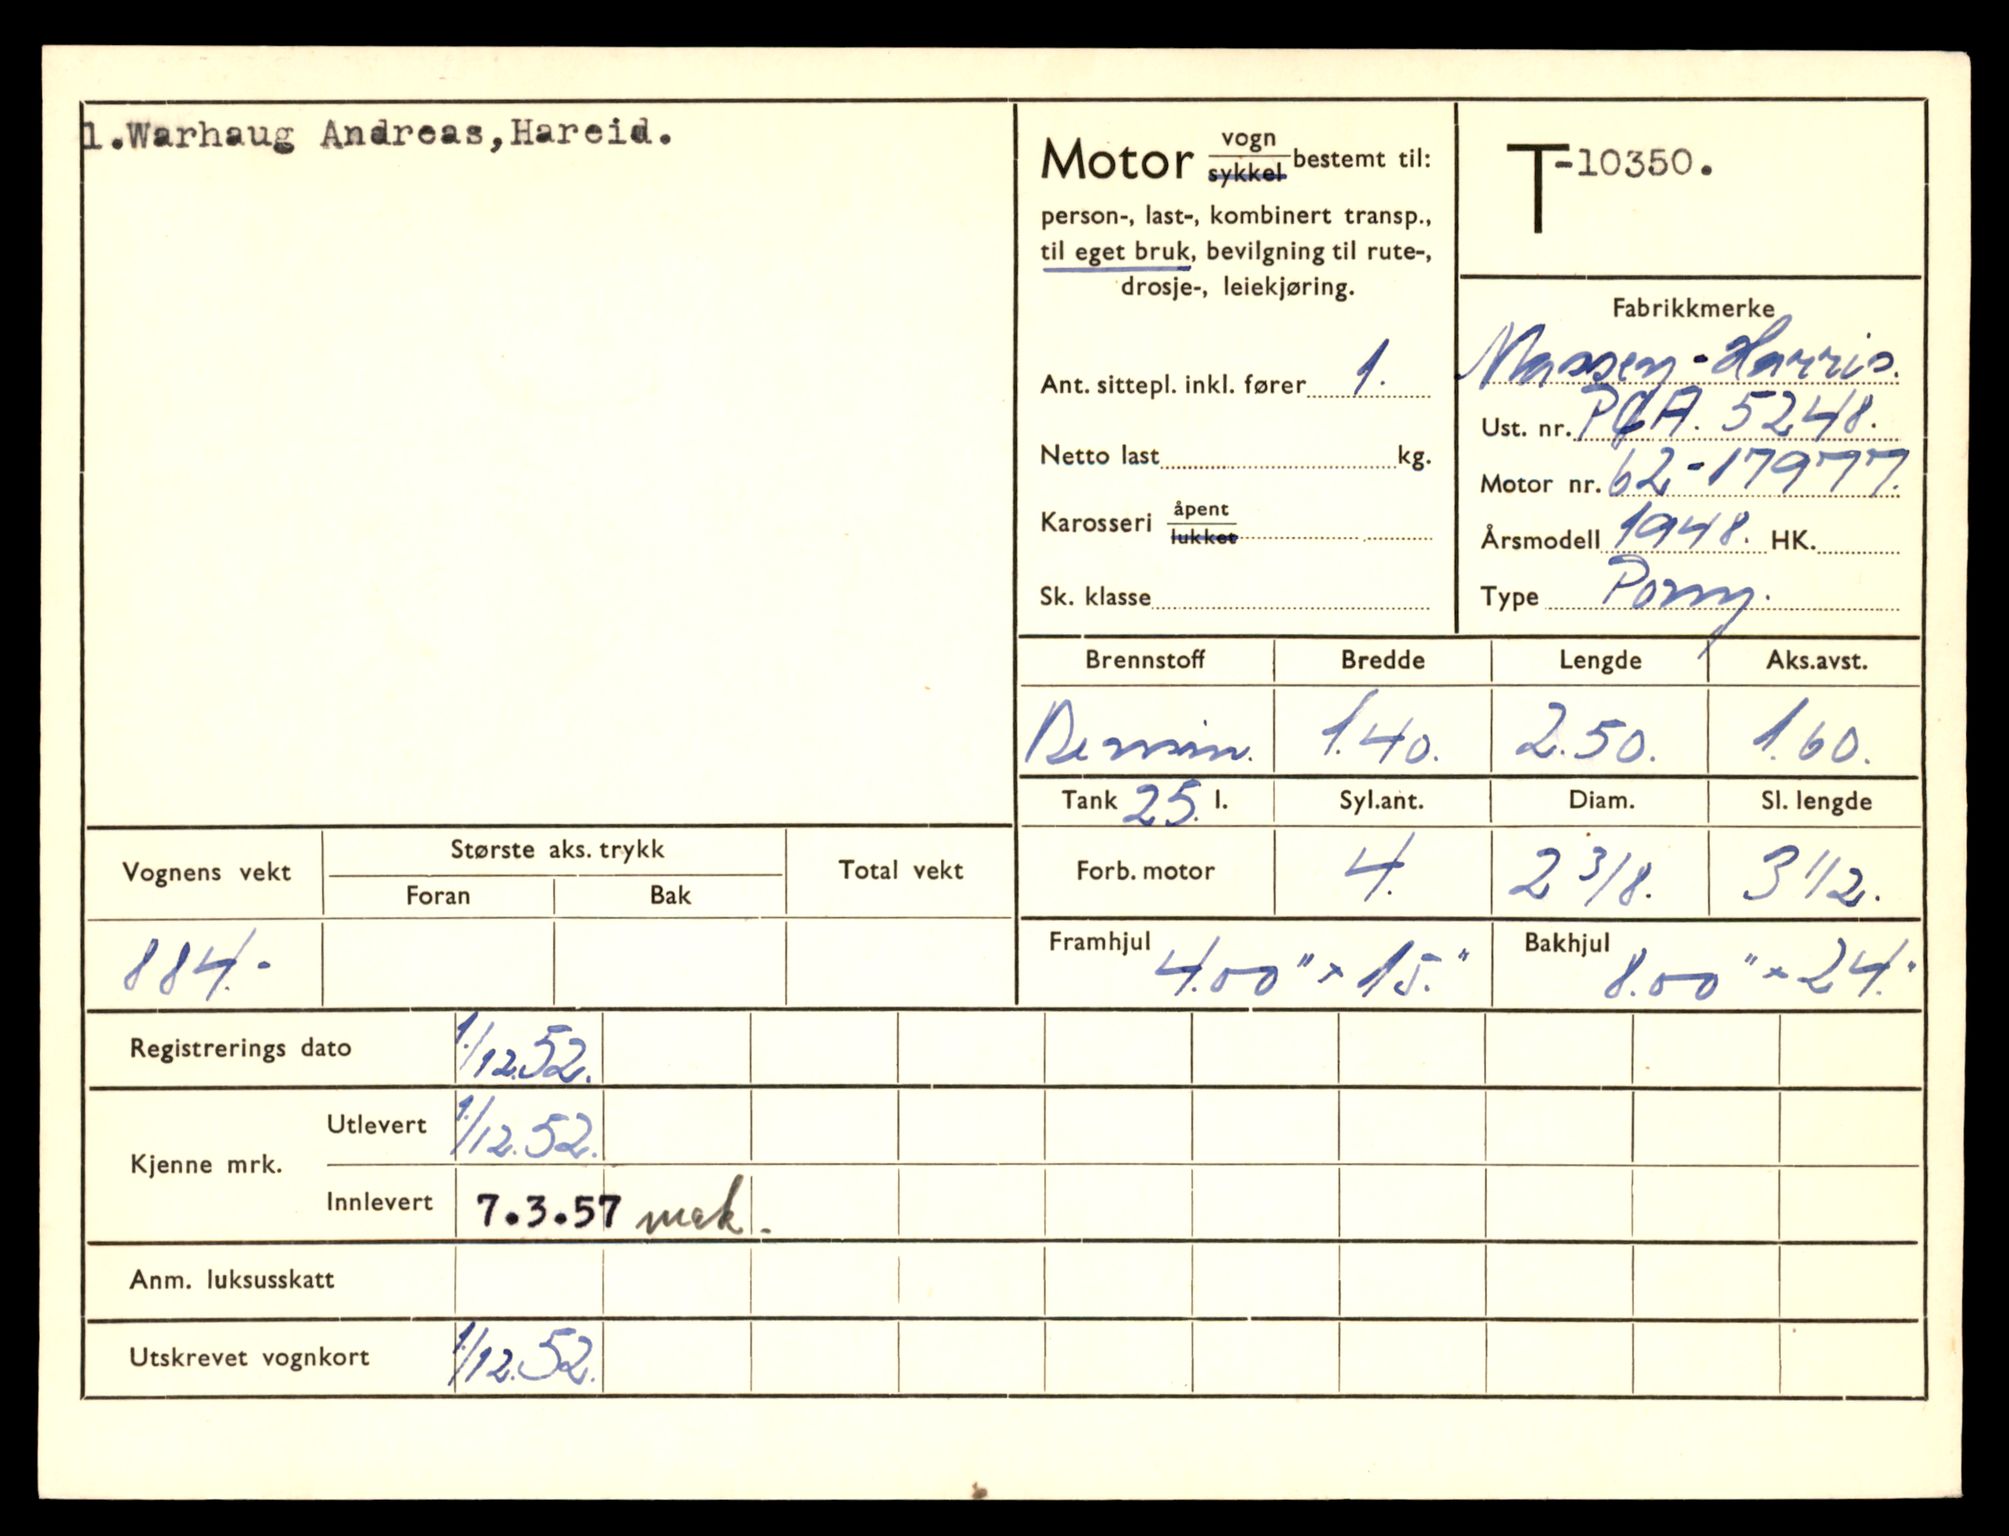 1.Warhaug Andreas,Hareid.
Motor vogn sykkel bestemt til:
person-, last-, kombinert transp.,
til eget bruk, bevilgning til rute-,
drosje-, leiekjøring.
Ant. sittepl. inkl. fører 1.
Netto last kg.
Karosseri åpent lukket
Sk. klasse
T-10350.
Fabrikkmerke
Massey-Harris.
Ust. nr. PGA. 5248.
Motor nr. 62-17977.
Årsmodell 1948. HK.
Type Pony.
Brennstoff Bredde Lengde Aks.avst.
Bensin. 1.40. 2.50. 1.60.
Tank 25. l. Syl.ant. Diam. Sl. lengde
Forb. motor 4. 2 3/8. 3 1/2.
Framhjul 4.00" x 15." Bakhjul 8.00" x 24."
Vognens vekt Største aks. trykk Total vekt
Foran Bak
884.-
Registrerings dato 1./12.52.
Kjenne mrk. Utlevert 1./12.52.
Innlevert 7.3.57 mek.
Anm. luksusskatt
Utskrevet vognkort 1./12.52.